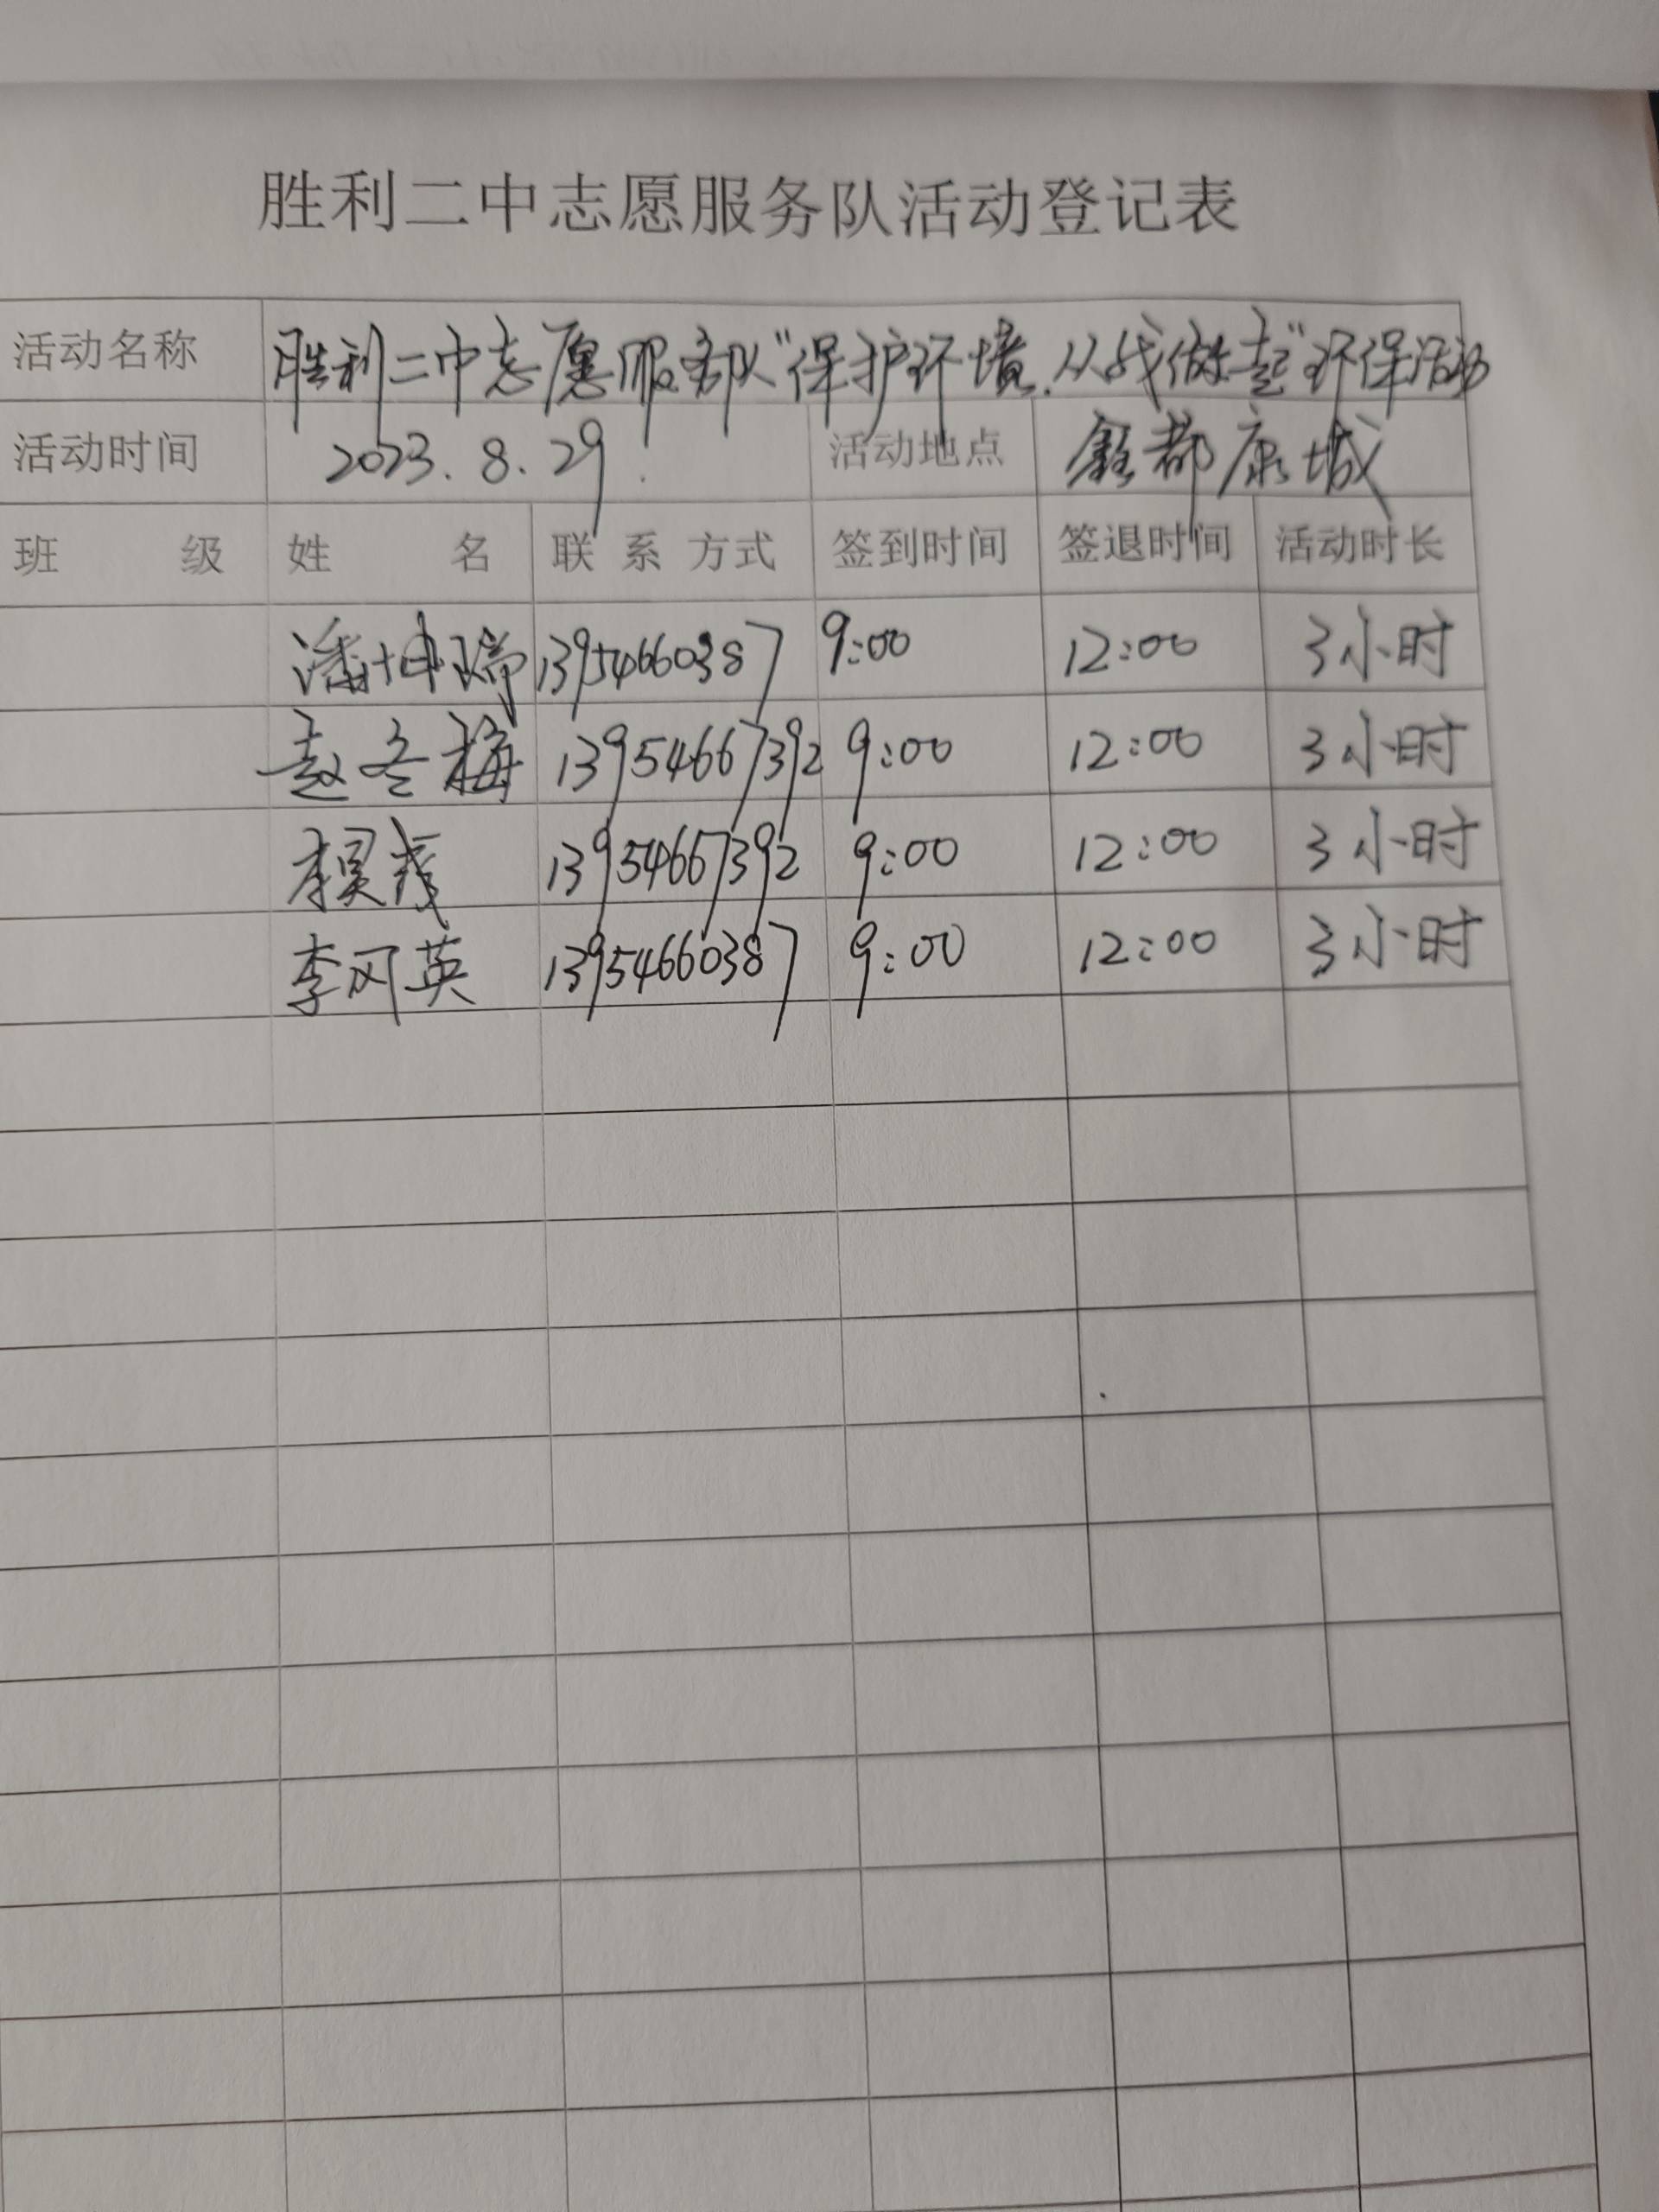 胜利二中志愿服务队活动登记表
活动名称 胜利二中志愿服务队"保护环境.从我做起"环保活动
活动时间 2023.8.29. 活动地点 鑫都康城
班 级 姓 名 联 系 方式 签到时间 签退时间 活动时长
潘坤瑞 13954660387 9:00 12:00 3小时
赵冬梅 13954667392 9:00 12:00 3小时
13954667392 9:00 12:00 3小时
李冈英 13954660387 9:00 12:00 3小时